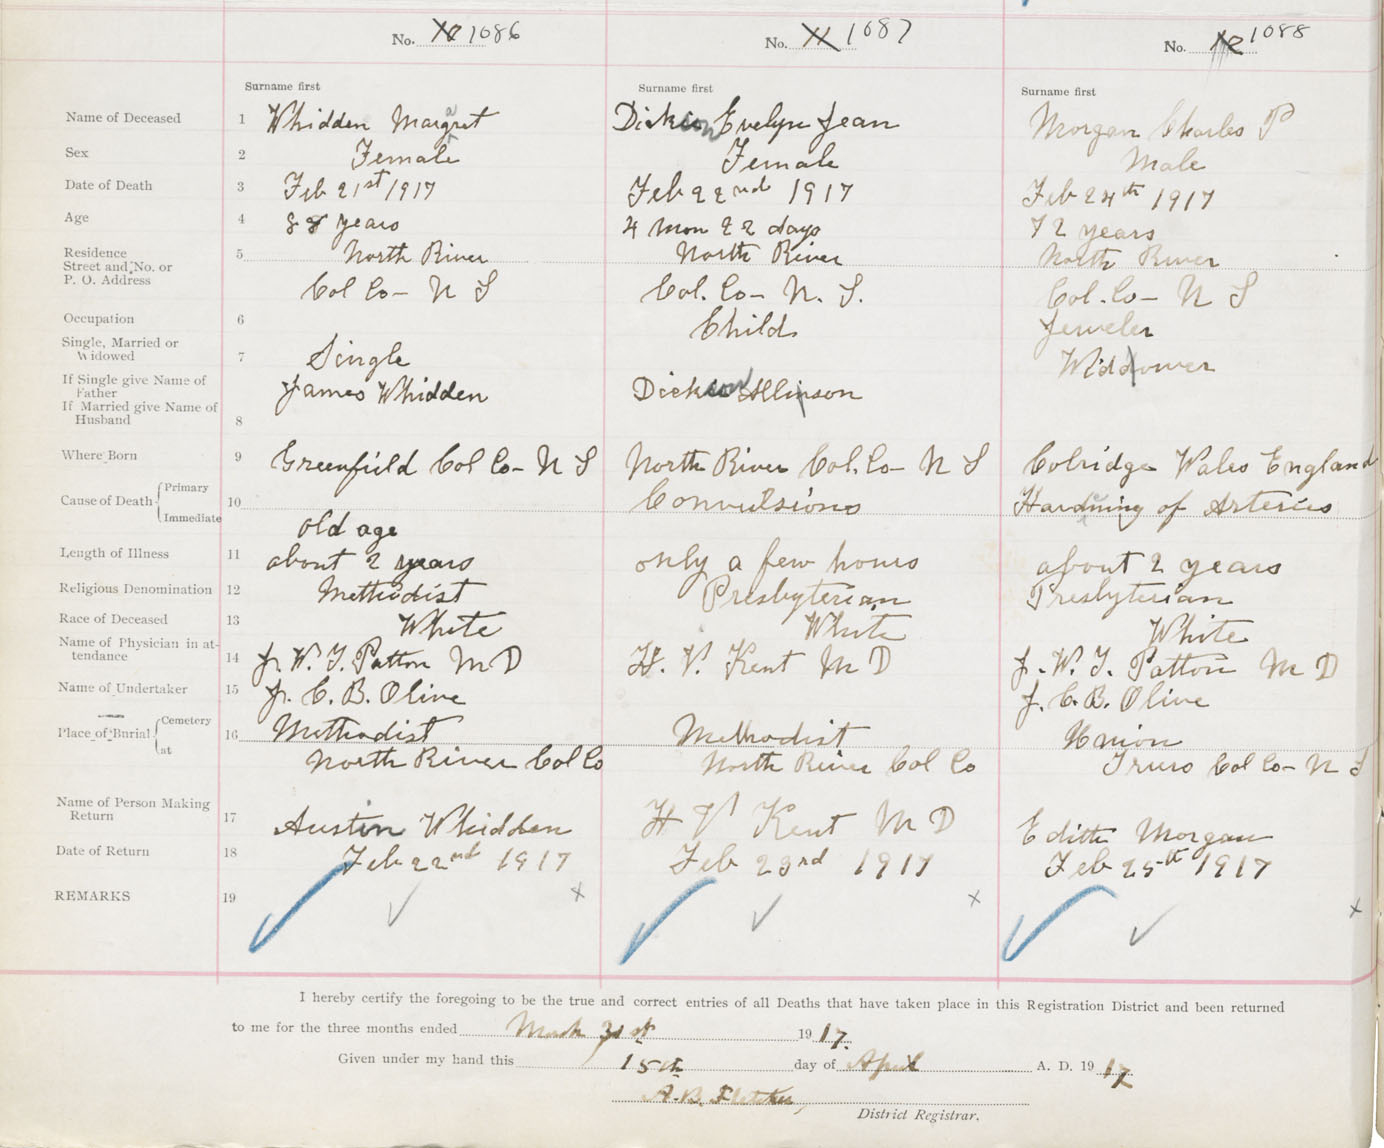 No. 1086 No. 11 1087 No. 12 1088
Surname first Surname first Surname first
Name of Deceased 1 Whidden Margaret Dickson Evelyn Jean Morgan Charles P
Sex 2 Female Female Male
Date of Death 3 Feb 21st 1917 Feb 22nd 1917 Feb 24th 1917
Age 4 88 years 4 mon 22 days 72 years
Residence
Street and No. or
P. O. Address
5 North River North River North River
Col Co- N S Col. Co- N. S. Col. Co- N S
Occupation 6 Child Jeweler
Single, Married or
Widowed
7 Single Widdower
If Single give Name of
Father
If Married give Name of
Husband
8 James Whidden Dickson
Where Born 9 Greenfield Col Co- N S North River Col. Co- N S Colridge Wales England
Cause of Death Primary
Immediate
10 Convulsions Hardning of Arteries
old age
Length of Illness 11 about 2 years only a few hours about 2 years
Religious Denomination 12 Methodist Presbyterian Presbyterian
Race of Deceased 13 White White White
Name of Physician in at-
tendance
14 J. W. T. Patton M D H. V. Kent M D J. W. T. Patton M D
Name of Undertaker 15 J. C. B. Olive J. C. B. Olive
Place of Burial Cemetery
at
16 Methodist Methodist Union
North River Col Co North River Col Co Truro Col Co- N S
Name of Person Making
Return
17 Austin Whidden H V Kent M D Edith Morgan
Date of Return 18 Feb 22nd 1917 Feb 23rd 1917 Feb 25th 1917
REMARKS 19
I hereby certify the foregoing to be the true and correct entries of all Deaths that have taken place in this Registration District and been returned
to me for the three months ended March 31st 1917.
Given under my hand this 15th day of April A. D. 1917
A. B. Fletcher,
District Registrar.